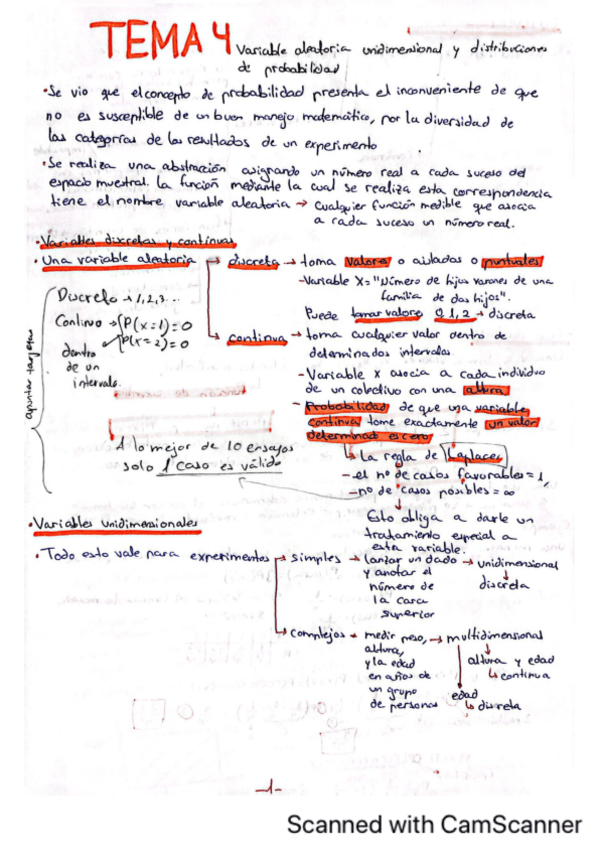 TEMA 4 Variable aleatoria unidimensional y distribuciones
de probabilidad
• Se vio que el concepto de probabilidad presenta el inconveniente de que
no es susceptible de un buen manejo matemático, por la diversidad de
las categorías de los resultados de un experimento
• Se realiza una abstracción asignando un número real a cada suceso del
espacio muestral. La función mediante la cual se realiza esta correspondencia
tiene el nombre variable aleatoria → cualquier función medible que asocia
a cada suceso un número real.
• Variables discretas y continuas
• Una variable aleatoria → discreta → toma valores o aislados o puntuales
- Variable X = "Número de hijos varones de una
familia de dos hijos".
Puede tomar valores 0,1,2 → discreta
→ continua → toma cualquier valor dentro de
determinados intervalos
- Variable x asocia a cada individuo
de un colectivo con una altura
- Probabilidad de que una variable
continua tome exactamente un valor
determinado es cero
↳ La regla de Laplace
- el nº de casos favorables = 1
- no de casos posibles = ∞
Esto obliga a darle un
tratamiento especial a
esta variable.
apuntar tarjetas
Discreto → 1,2,3...
Continuo → P(x=1)=0
P(x=2)=0
dentro
de un
intervalo.
A lo mejor de 10 ensayos
solo 1 caso es válido
• Variables unidimensionales
• Todo esto vale para experimentos → simples → lanzar un dado → unidimensional
y anotar el
número de
la cara
superior
discreta
→ complejos → medir peso, → multidimensional
altura,
y la edad
en años de
un grupo
de personas
altura y edad
↳ continua
edad
↳ discreta
-1-
Scanned with CamScanner